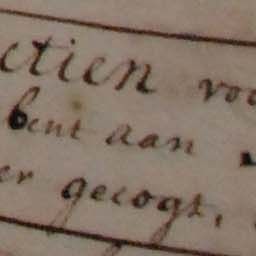 ctien voo
bent aan
er gecogt,